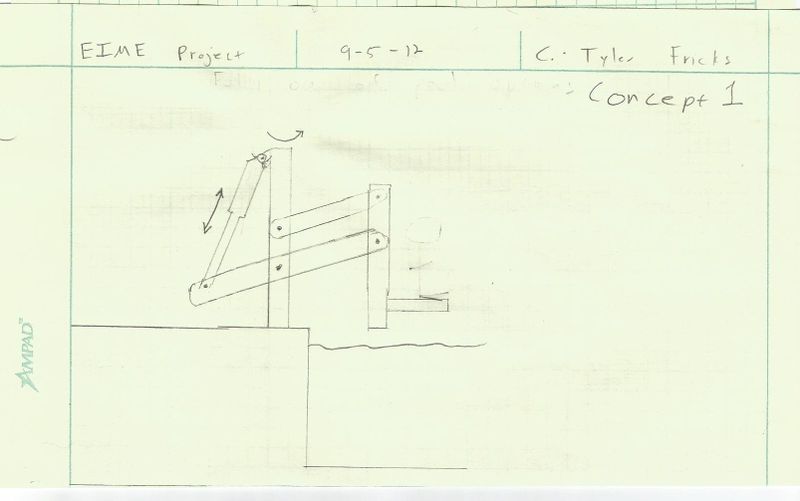 EIME Project 9-5-12 C. Tyler Fricks
Concept 1
AMPAD™